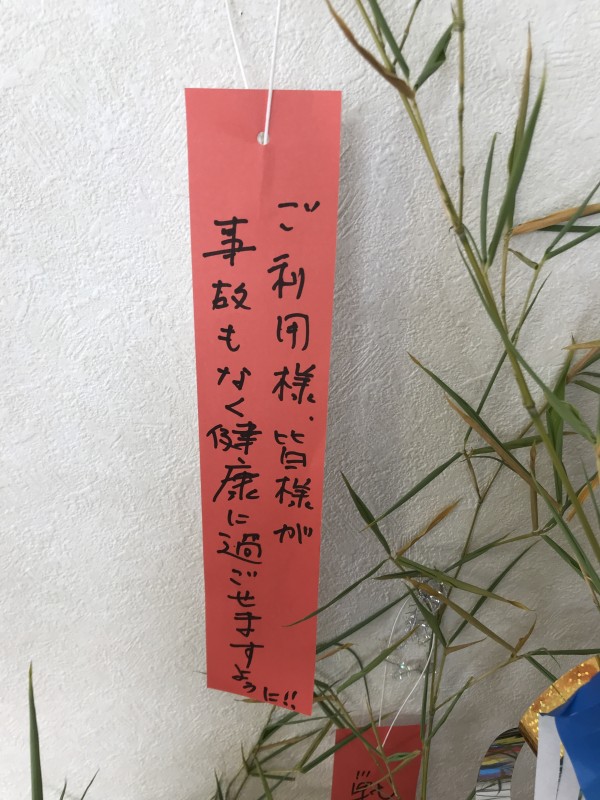 ご利用様、皆様が
事故もなく健康に過ごせますように!!